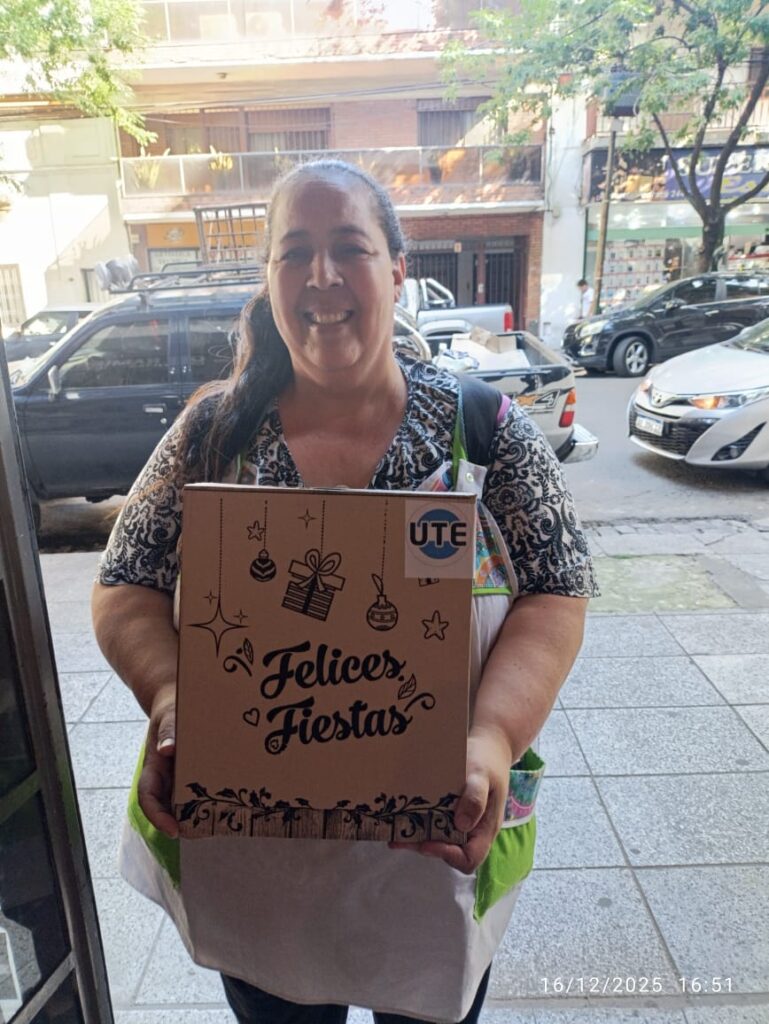 UTE
Felices
Fiestas
16/12/2025 16:51